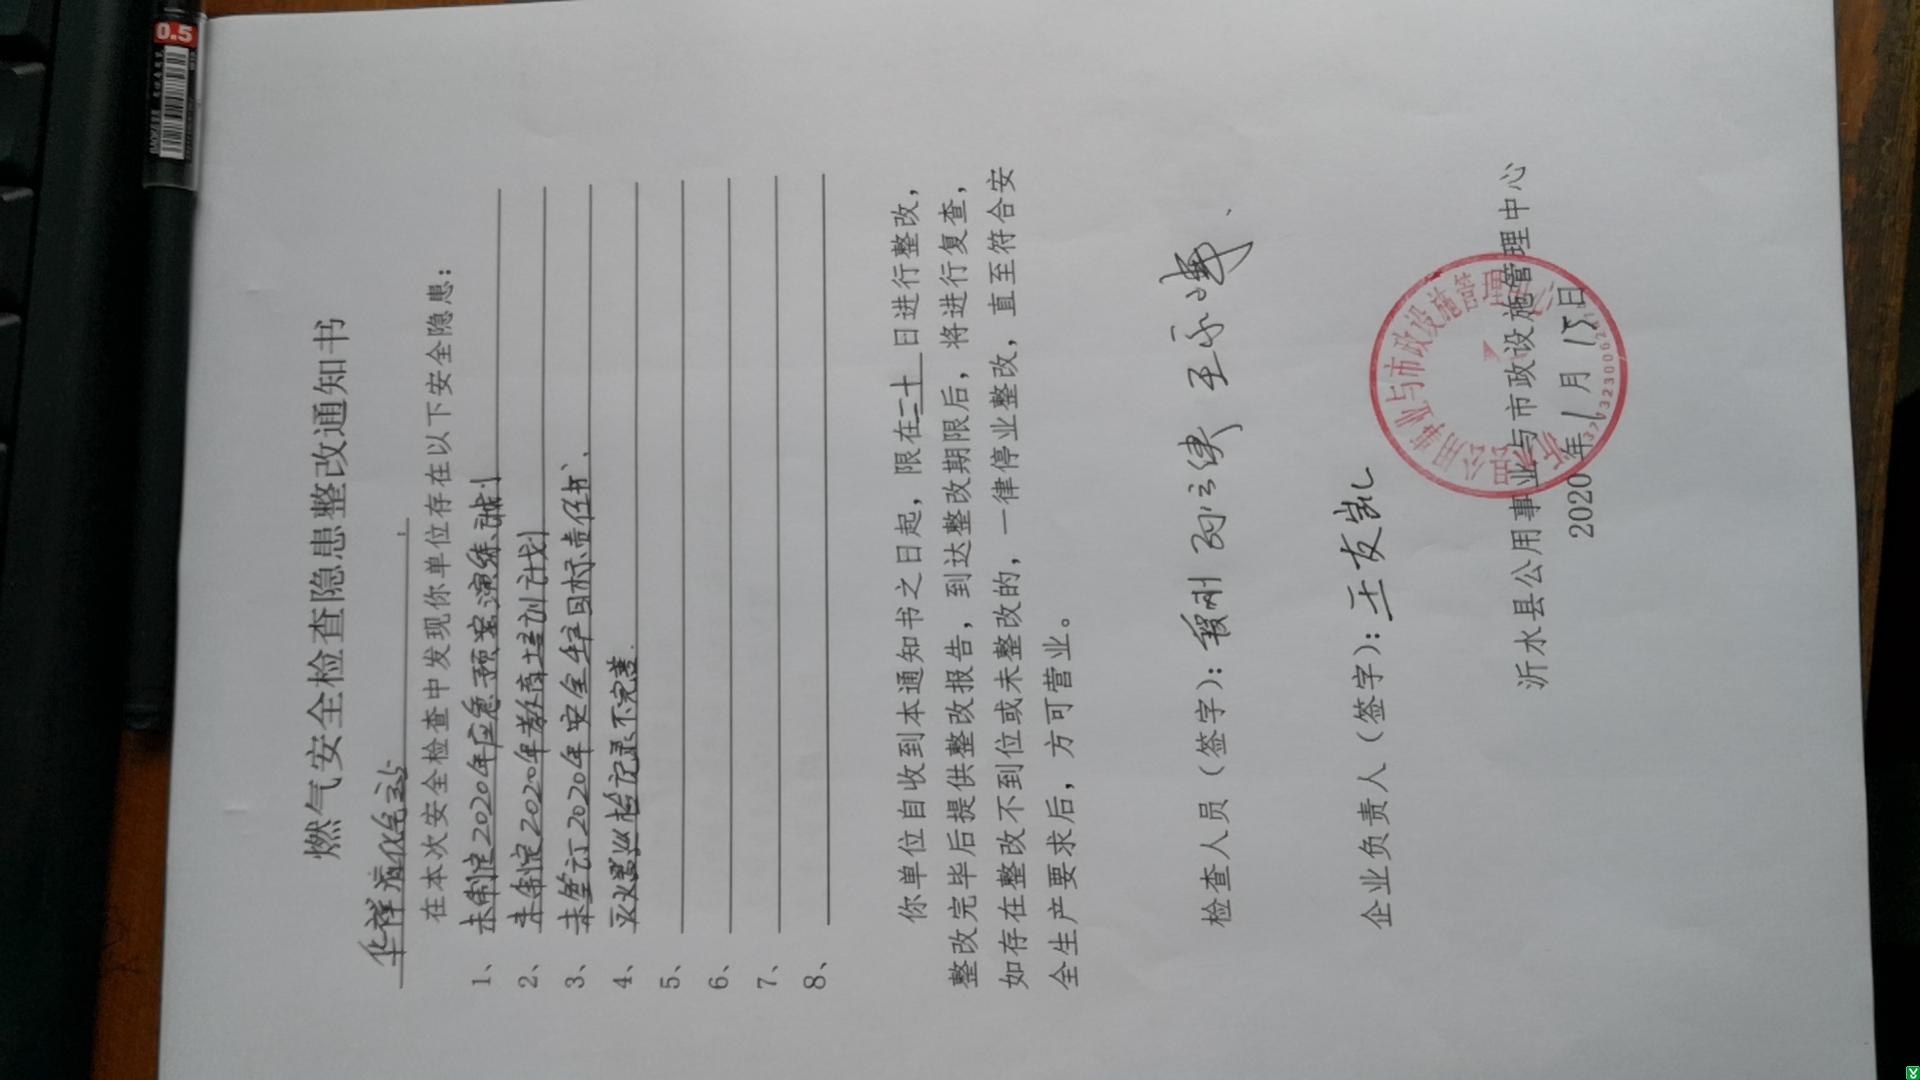 燃气安全检查隐患整改通知书
华祥液化气站
在本次安全检查中发现你单位存在以下安全隐患：
1、未制定2020年应急预案演练计划
2、未制定2020年教育培训计划
3、未签订2020年安全生产目标责任书、
4、灭火器巡检记录不完善.
5、
6、
7、
8、
你单位自收到本通知书之日起，限在二十日进行整改，
整改完毕后提供整改报告，到达整改期限后，将进行复查，
如存在整改不到位或未整改的，一律停业整改，直至符合安
全生产要求后，方可营业。
检查人员（签字）：
企业负责人（签字）：王友凯
沂水县公用事业与市政设施管理中心
2020年1月15日
公用事业与市政设施管理
0.5